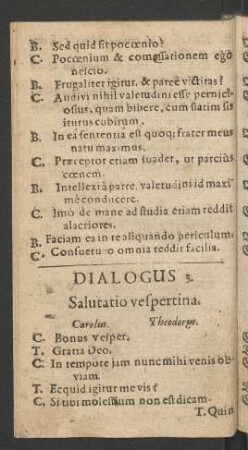 B. Sed quid sit pocœnio?
C. Pocœnium & comessationem ego
nescio.
B. Frugaliter igitur, & parcè victitas?
C. Audivi nihil valetudini esse pernici-
osius, quam bibere, cum statim sis
iturus cubitum.
B. In ea sententia est quoq; frater meus
natu maximus.
C. Præceptor etiam suadet, ut parciùs
cœnem.
B. Intellexi à patre, valetudini id maxi-
mè conducere.
C. Imo de mane ad studia etiam reddit
alacriores.
B. Faciam ea in re aliquando periculum.
C. Consuetudo omnia reddit facilia.
DIALOGUS 3.
Salutatio vespertina.
Carolus. Theodorus.
C. Bonus vesper.
T. Gratia Deo.
C. In tempore jam nunc mihi venis ob-
viam.
T. Ecquid igitur me vis?
C. Si tibi molestum non est dicam.
T. Quin